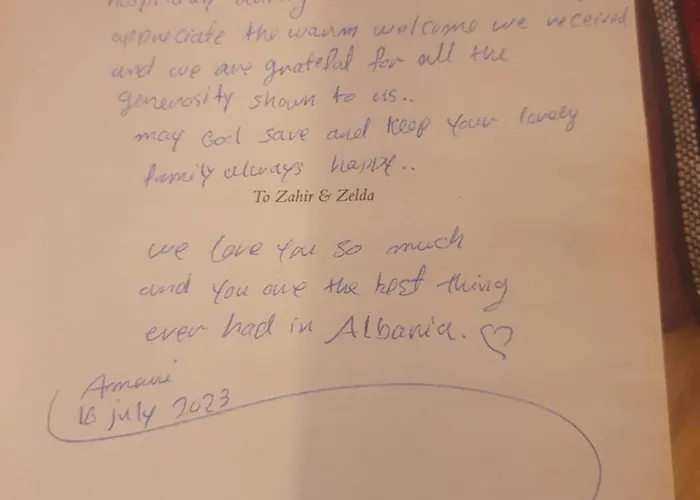 appreciate the warm welcome we received
and we are grateful for all the
generosity shown to us..
may God save and keep your lovely
family always happy..
To Zahir & Zelda
we love you so much
and you are the best thing
ever had in Albania. ♡
16 july 2023